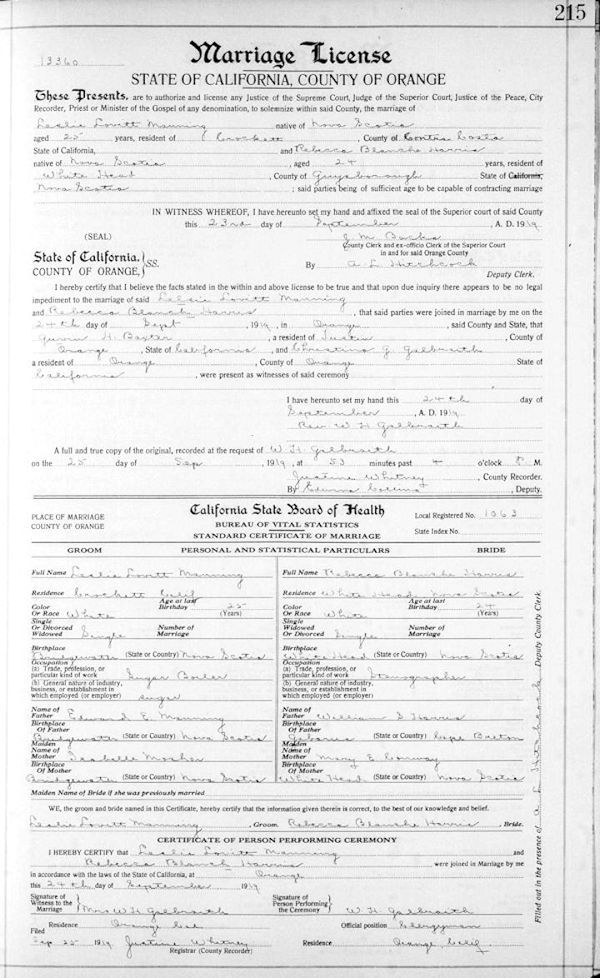 215
13360
Marriage License
STATE OF CALIFORNIA, COUNTY OF ORANGE
These Presents, are to authorize and license any Justice of the Supreme Court, Judge of the Superior Court, Justice of the Peace, City
Recorder, Priest or Minister of the Gospel of any denomination, to solemnize within said County, the marriage of
Leslie Lovitt Manning native of Nova Scotia
aged 25 years, resident of Crockett, County of Contra Costa
State of California, and Rebecca Blanche Harris
native of Nova Scotia, aged 24 years, resident of
White Head, County of Guysborough State of California,
Nova Scotia; said parties being of sufficient age to be capable of contracting marriage
IN WITNESS WHEREOF, I have hereunto set my hand and affixed the seal of the Superior court of said County
this 23rd day of September, A. D. 1919
(SEAL) J. M. Backs
County Clerk and ex-officio Clerk of the Superior Court
in and for said Orange County
State of California. } SS.
COUNTY OF ORANGE,
By A. L. Hitchcock
Deputy Clerk.
I hereby certify that I believe the facts stated in the within and above license to be true and that upon due inquiry there appears to be no legal
impediment to the marriage of said Leslie Lovitt Manning
and Rebecca Blanch Harris, that said parties were joined in marriage by me on the
24th day of Sept, 1919, in Orange, said County and State, that
H. Baxter, a resident of Tustin, County of
Orange, State of California, and Christina J. Galbraith
a resident of Orange, County of Orange State of
California, were present as witnesses of said ceremony
I have hereunto set my hand this 24th day of
September, A. D. 1919
Rev. W H Galbraith
A full and true copy of the original, recorded at the request of W. H. Galbraith
on the 25 day of Sep, 1919, at 53 minutes past 4 o'clock P. M.
Justine Whitney, County Recorder.
By Collins, Deputy.
PLACE OF MARRIAGE
COUNTY OF ORANGE
California State Board of Health
BUREAU OF VITAL STATISTICS
STANDARD CERTIFICATE OF MARRIAGE
Local Registered No. 1063
State Index No.
GROOM PERSONAL AND STATISTICAL PARTICULARS BRIDE
Full Name Leslie Lovitt Manning
Residence Crockett Calif
Color Or Race White Age at last Birthday 25 (Years)
Single Widowed Or Divorced Single Number of Marriage
Birthplace Bridgewater (State or Country) Nova Scotia
Occupation
(a) Trade, profession, or particular kind of work Sugar Boiler
(b) General nature of industry, business, or establishment in which employed (or employer) sugar
Name of Father Edward E Manning
Birthplace Of Father Bridgewater (State or Country) Nova Scotia
Maiden Name of Mother Isabelle Mosher
Birthplace Of Mother Bridgewater (State or Country) Nova Scotia
Full Name Rebecca Blanche Harris
Residence White Head Nova Scotia
Color Or Race White Age at last Birthday 24 (Years)
Single Widowed Or Divorced Single Number of Marriage
Birthplace White Head (State or Country) Nova Scotia
Occupation
(a) Trade, profession, or particular kind of work Stenographer
(b) General nature of industry, business, or establishment in which employed (or employer)
Name of Father William S Harris
Birthplace Of Father Gabarus (State or Country) Cape Breton
Maiden Name of Mother Mary E Conway
Birthplace Of Mother White Head (State or Country) Nova Scotia
Maiden Name of Bride if she was previously married
WE, the groom and bride named in this Certificate, hereby certify that the information given therein is correct, to the best of our knowledge and belief.
Leslie Lovitt Manning, Groom. Rebecca Blanche Harris, Bride.
CERTIFICATE OF PERSON PERFORMING CEREMONY
I HEREBY CERTIFY that Leslie Lovitt Manning and
Rebecca Blanch Harris were joined in Marriage by me
in accordance with the laws of the State of California, at Orange
this 24th day of September 1919
Signature of Witness to the Marriage Mrs W H Galbraith Signature of Person Performing the Ceremony W. H. Galbraith
Residence Orange Cal Official position Clergyman
Filed
Sep 25 1919 Justine Whitney Residence Orange, Calif
Registrar (County Recorder)
Filled out in the presence of A L Hitchcock Deputy County Clerk.